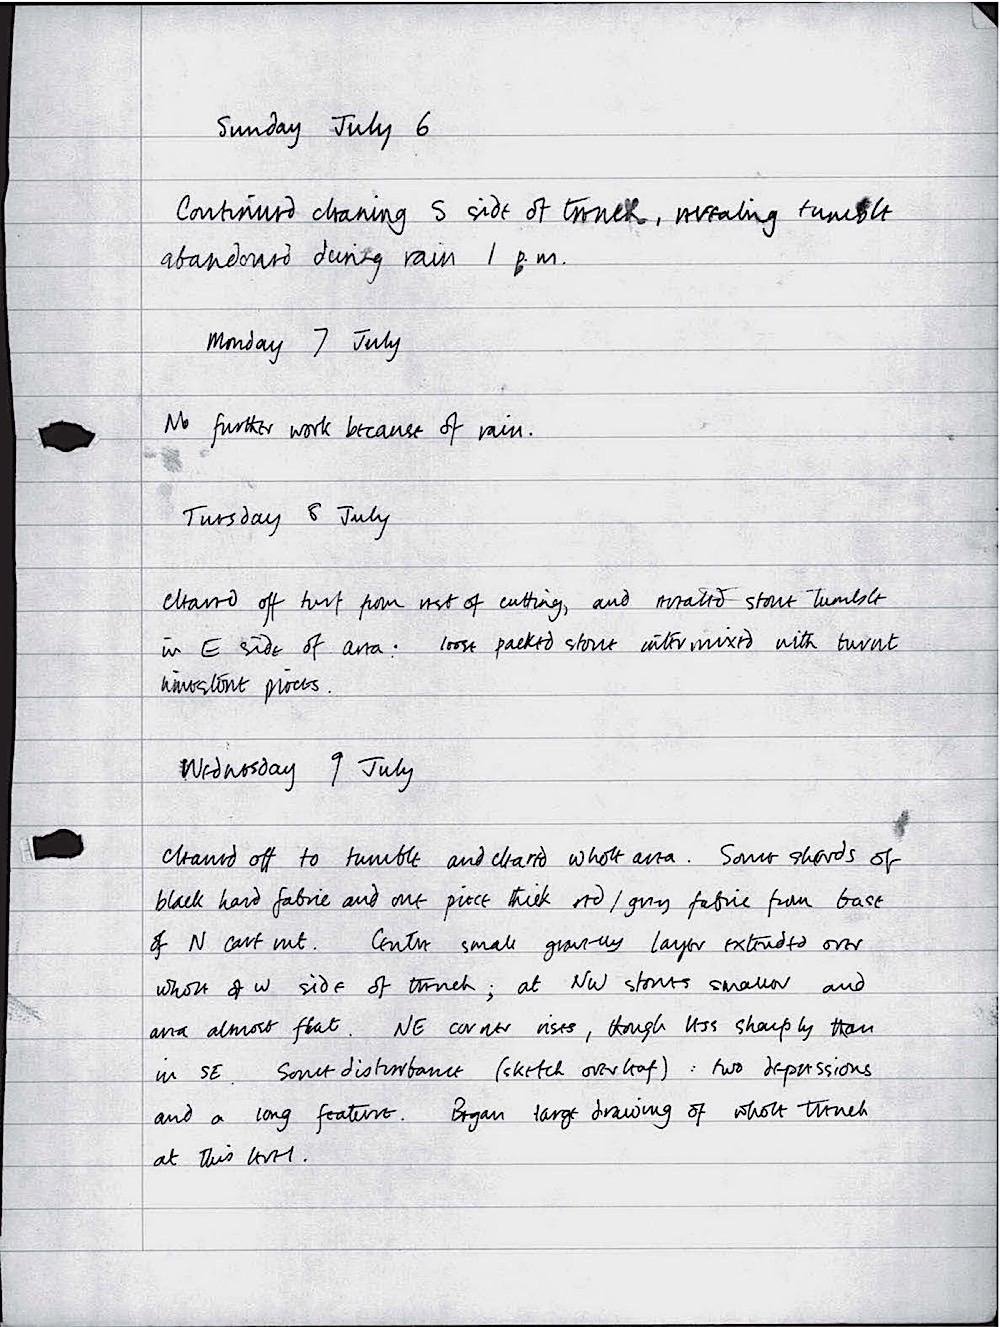 Sunday July 6
Continued cleaning S side of trench, revealing tumble
abandoned during rain 1 p.m.
Monday 7 July
No further work because of rain.
Tuesday 8 July
Cleared off turf from rest of cutting, and revealed stone tumble
in E side of area: loose packed stone intermixed with burnt
limestone pieces.
Wednesday 9 July
Cleaned off to tumble and cleared whole area. Some sherds of
black hard fabric and one piece thick red/grey fabric from base
of N
Centre small gravelly layer extended over
whole of W side of trench; at NW stones smaller and
area almost flat. NE corner rises, though less sharply than
in SE. Some disturbance (sketch overleaf): two depressions
and a long feature. Began large drawing of whole trench
at this level.